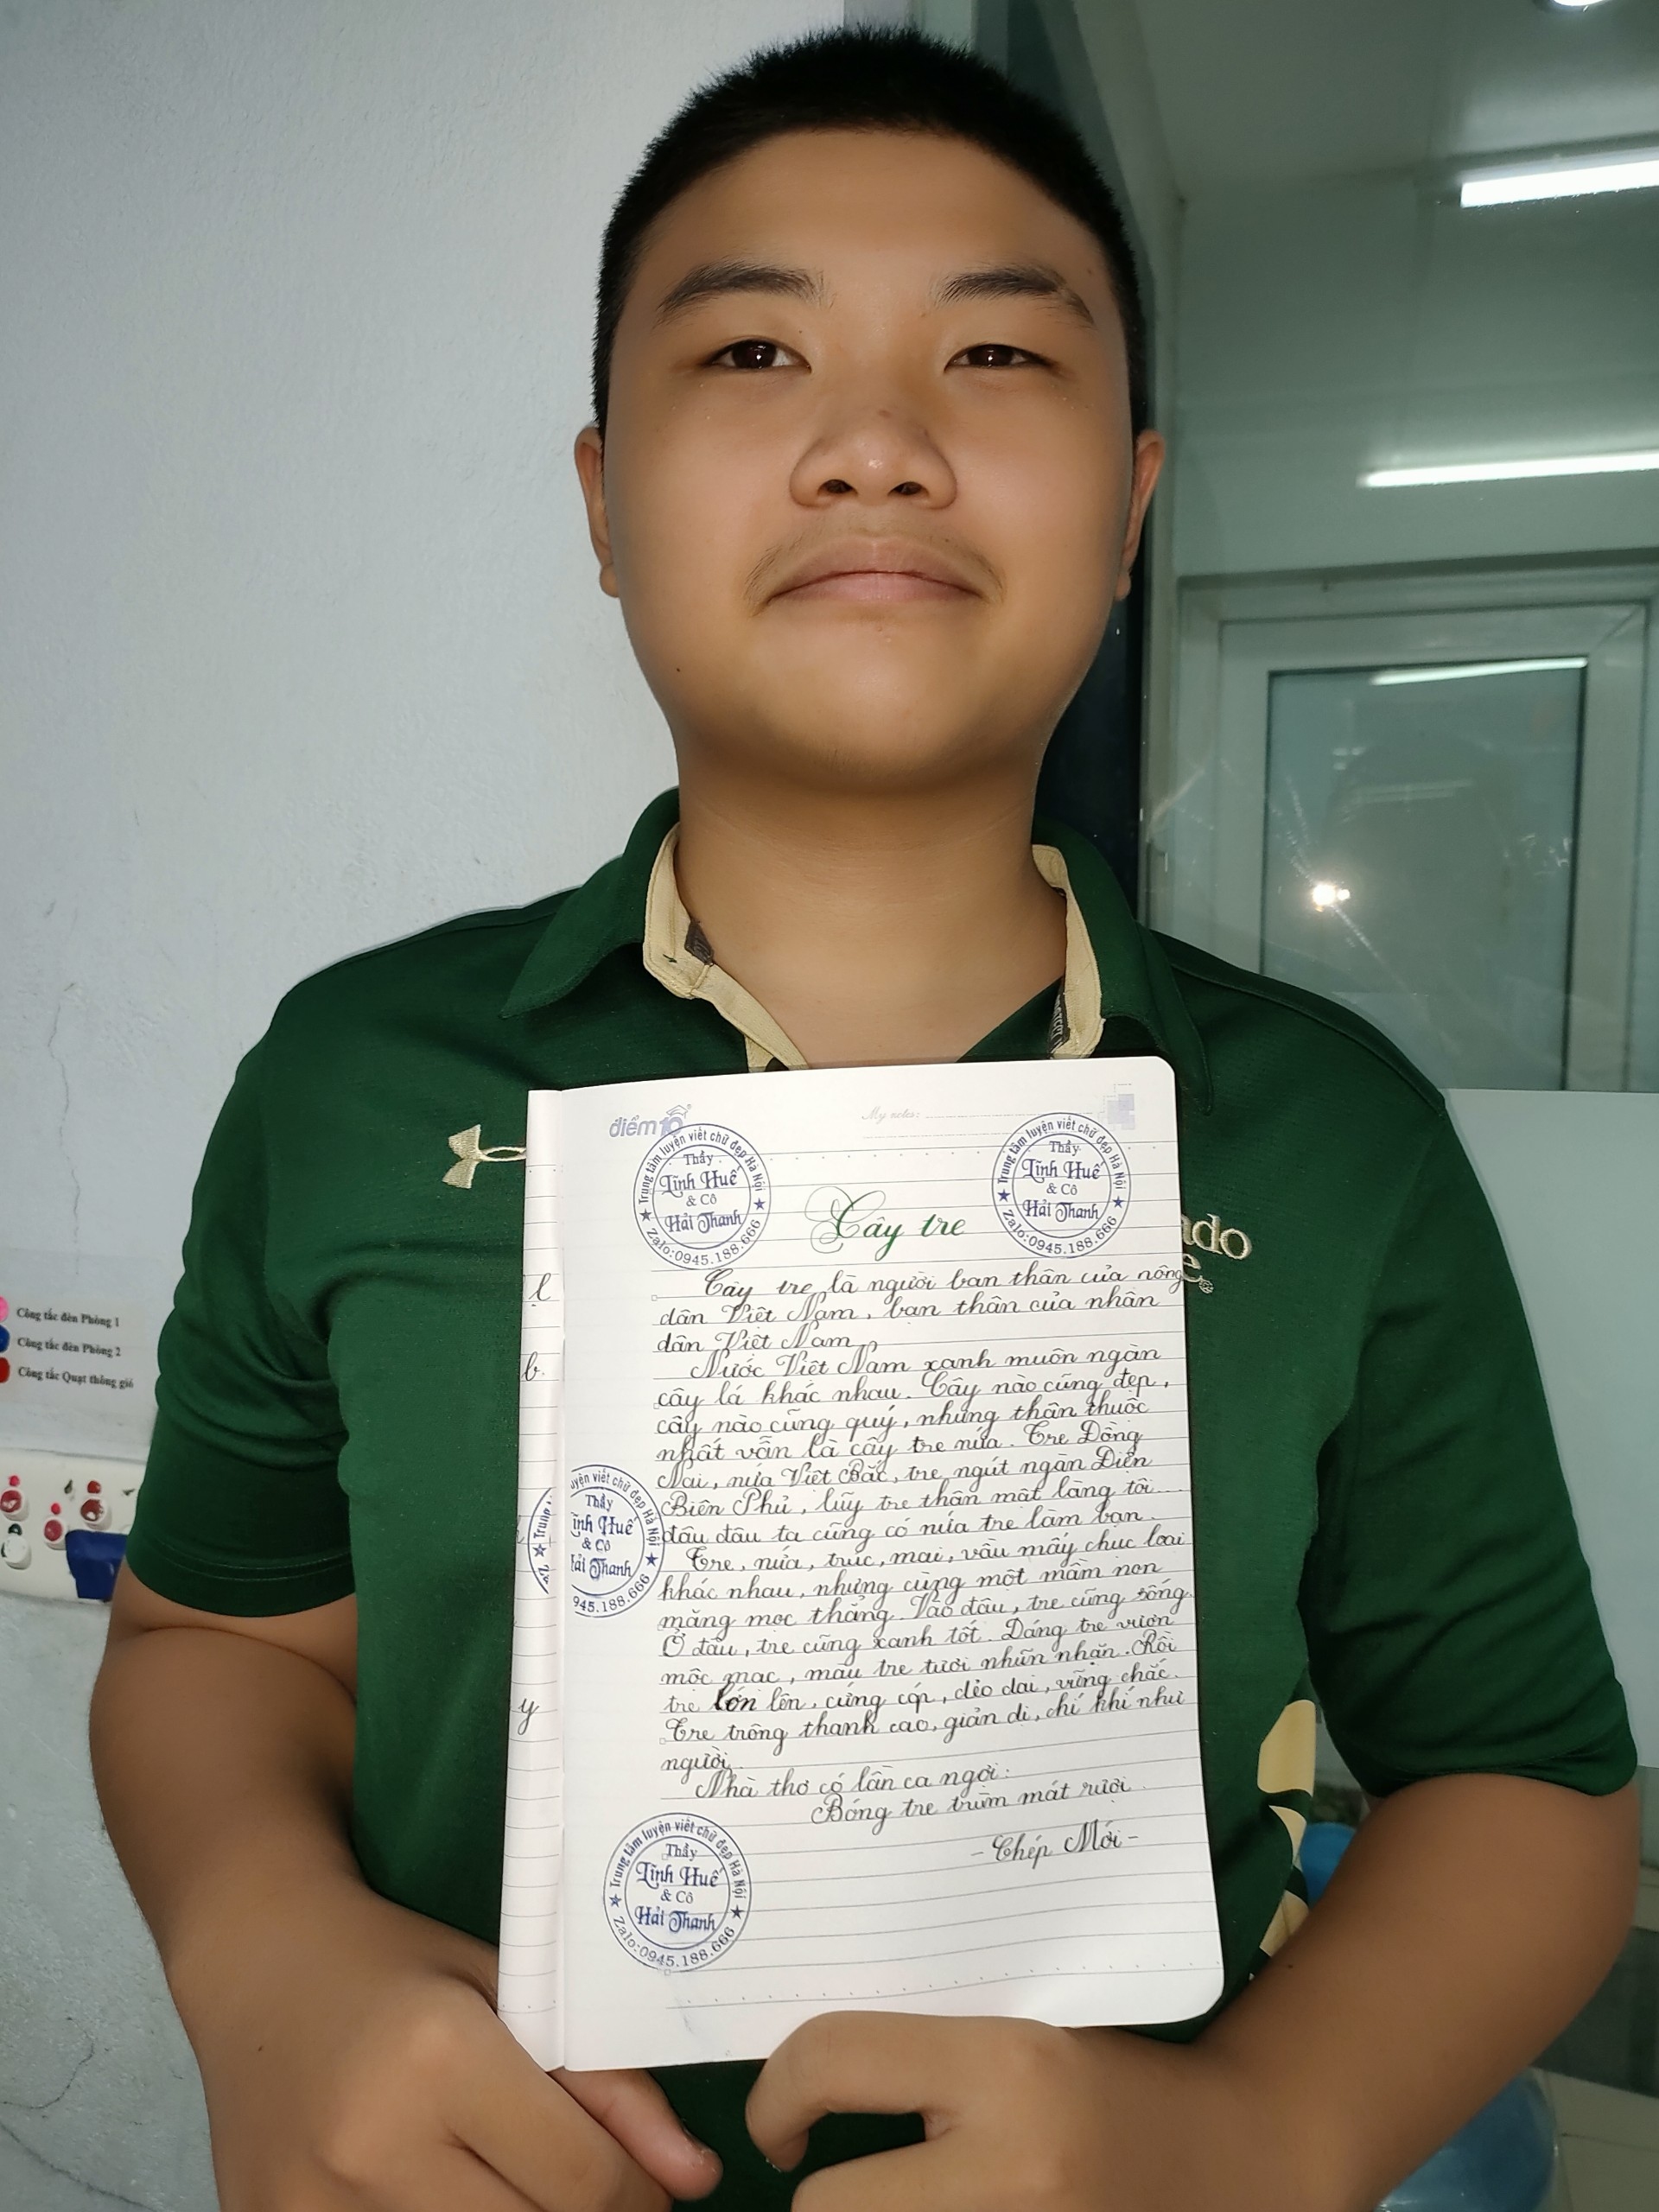 điểm10
My notes:
Trung tâm luyện viết chữ đẹp Hà Nội
Thầy
Lĩnh Huế
& Cô
Hải Thanh
Zalo:0945.188.666
Trung tâm luyện viết chữ đẹp Hà Nội
Thầy
Lĩnh Huế
& Cô
Hải Thanh
Zalo:0945.188.666
Cây tre
Cây tre là người bạn thân của nông
dân Việt Nam, bạn thân của nhân
dân Việt Nam
Nước Việt Nam xanh muôn ngàn
cây lá khác nhau. Cây nào cũng đẹp,
cây nào cũng quý, nhưng thân thuộc
nhất vẫn là cây tre nứa. Tre Đồng
Nai, nứa Việt Bắc, tre ngút ngàn Điện
Biên Phủ, lũy tre thân mật làng tôi....
đâu đâu ta cũng có nứa tre làm bạn.
Tre, nứa, trúc, mai, vầu mấy chục loại
khác nhau, nhưng cùng một mầm non
măng mọc thẳng. Vào đâu, tre cũng sống
Ở đâu, tre cũng xanh tốt. Dáng tre vươn
mộc mạc, màu tre tươi nhũn nhặn. Rồi
tre lớn lên, cứng cáp, dẻo dai, vững chắc.
Tre trông thanh cao, giản dị, chí khí như
người.
Nhà thơ có lần ca ngợi:
Bóng tre trùm mát rượi
- Thép Mới -
yện viết chữ đẹp Hà Nội
Thầy
ĩnh Huế
& Cô
Hải Thanh
945.188.666
Trung
Za
Trung tâm luyện viết chữ đẹp Hà Nội
Thầy
Lĩnh Huế
& Cô
Hải Thanh
Zalo:0945.188.666
l
b
y
ado
e
Công tắc đèn Phòng 1
Công tắc đèn Phòng 2
Công tắc Quạt thông gió